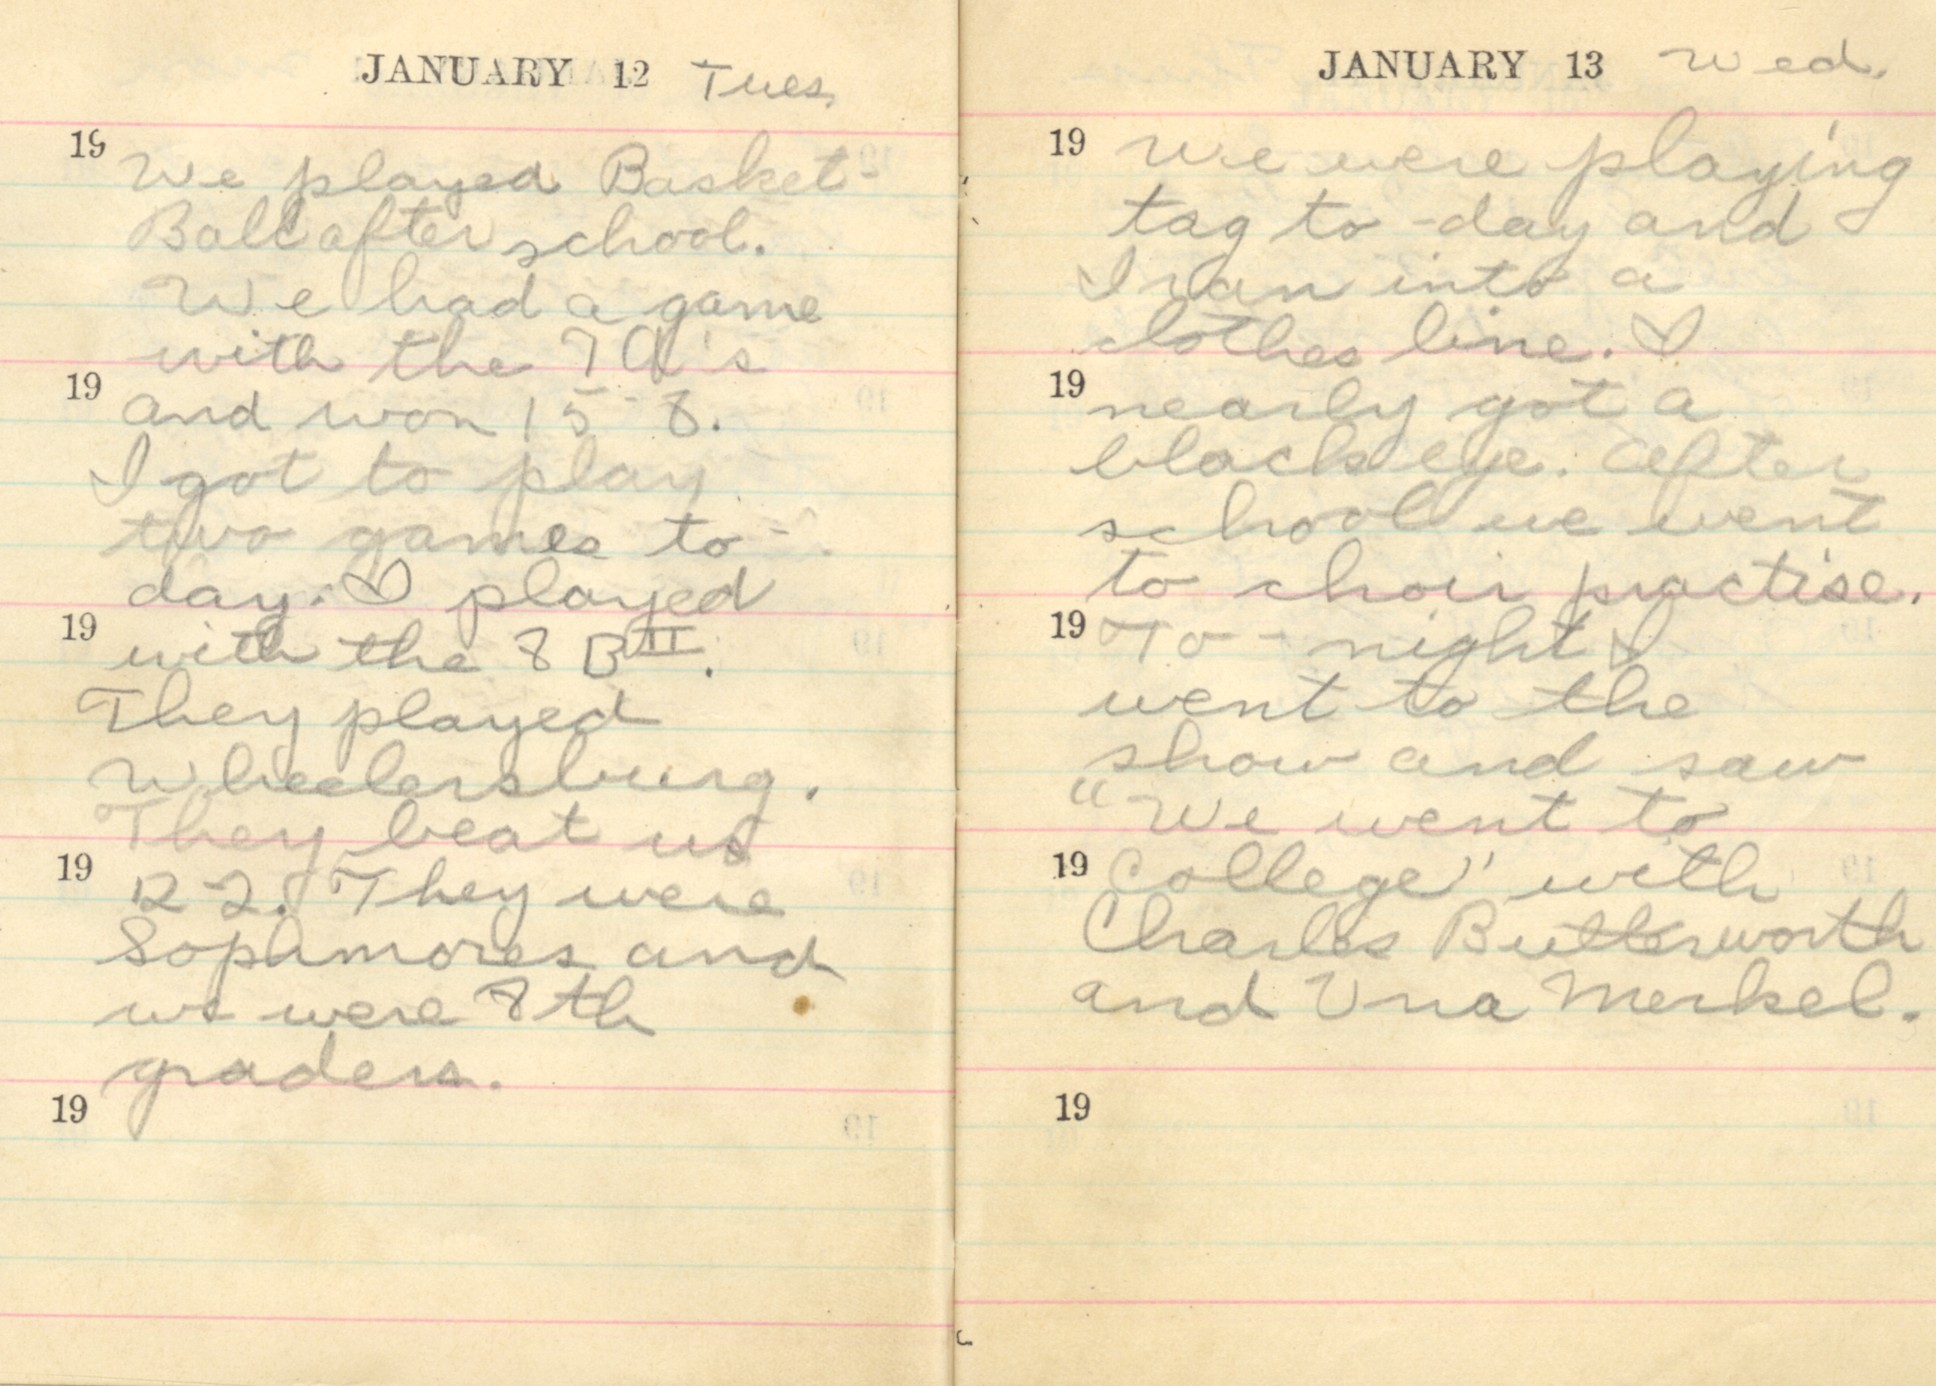 JANUARY 12 Tues.
19 We played Basket-
Ball after school.
We had a game
with the 7A's
19 and won 15-8.
I got to play
two games to-
day. I played
19 with the 8 B II.
They played
Wheelersburg.
They beat us
19 12 2. They were
Sophmores and
we were 8th
graders.
19
JANUARY 13 Wed.
19 We were playing
tag to-day and
I ran into a
clothes line. I
19 nearly got a
black eye. After
school we went
to choir practise.
19 To-night I
went to the
show and saw
"We went to
19 College" with
Charles Butterworth
and Una Merkel.
19